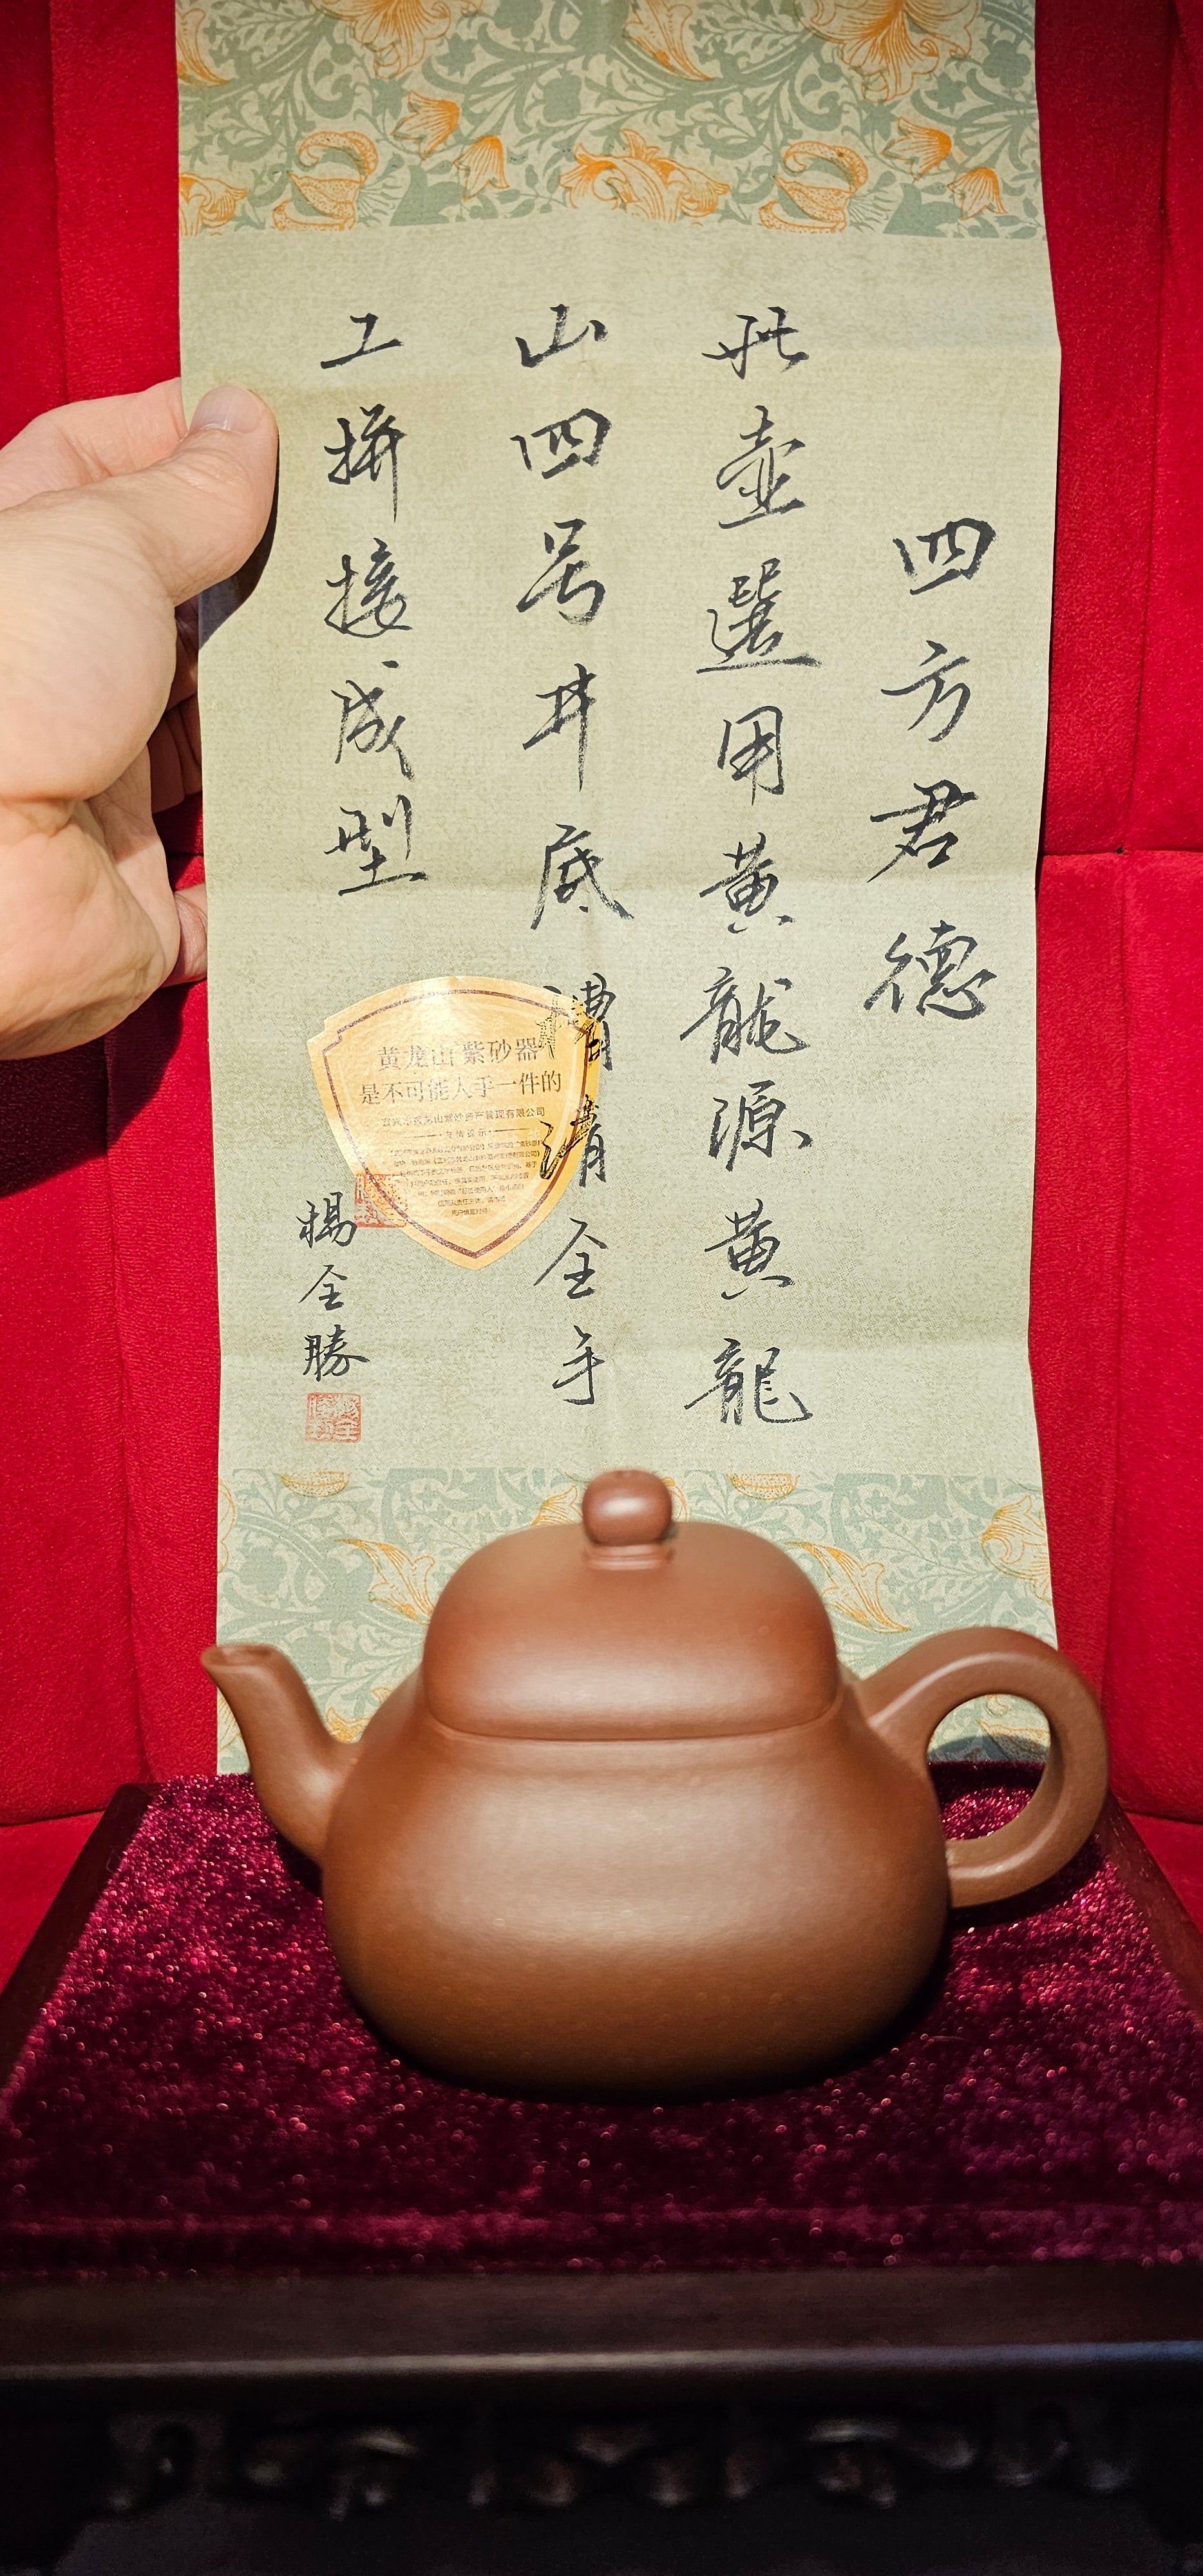 四方君德
此壶選用黄龍源黄龍
山四号井底槽清全手
工拼接成型
楊全勝
黄龙山紫砂器
是不可能人手一件的